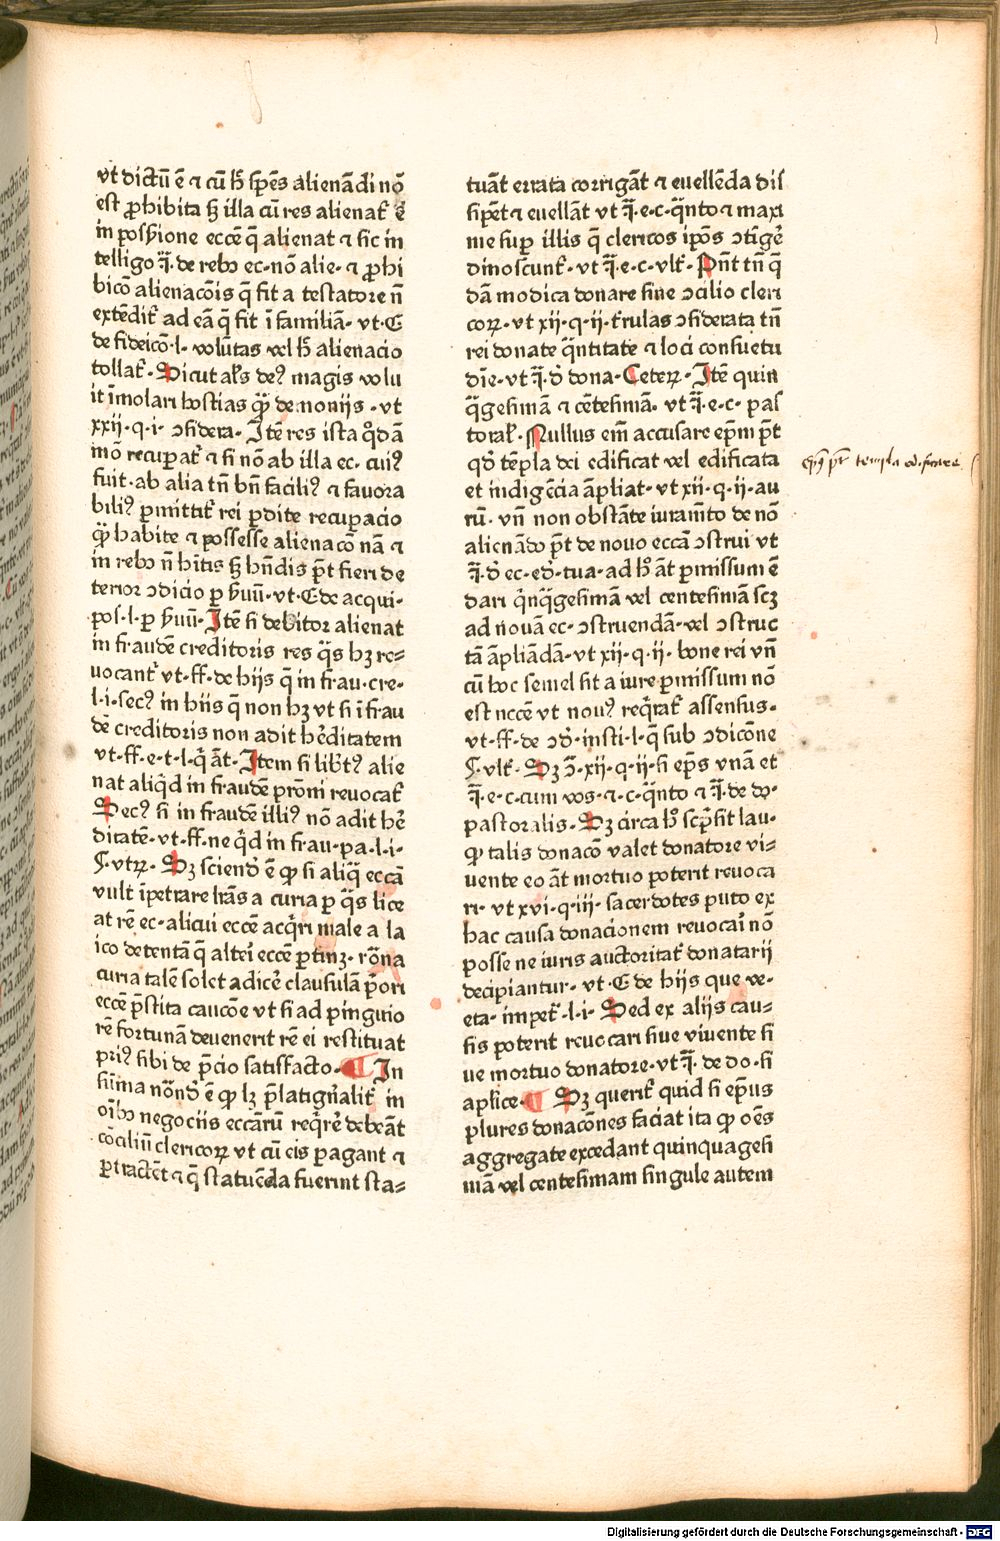 vt dictū ē ⁊ cū h̄ sp̄es alienādi nō
est ꝓhibita sꝫ illa cū res alienat᷑ ē
in possv̄ione eccē q̄ alienat ⁊ sic in
telligo q̄. de rebꝰ ec·nō alie· ⁊ ꝓhi
bicō alienacōis q̄ fit a testatore n̄
extēdit᷑ ad eā q̄ fit ī familiā· vt·C
de fideicō·l· volūtas vel h̄ alienacio
tollat᷑· Sicut al̄s deꝰ magis volu
it īmolari hostias qꝫ demonijs · vt
xxij·q·i· ↄsidera· Itē res ista qͦdā
mō recupat᷑ ⁊ si nō ab illa ec· cuiꝰ
fuit·ab alia tn̄ bn̄ faciliꝰ ⁊ favora
biliꝰ pmittit᷑ rei pdite recupacio
qꝫ habite ⁊ possesse alienacō nā ⁊
in rebꝰ n̄ hītis sꝫ hn̄dis p̄t fieri de
terior ↄdicio p ẜuū·vt·C de acqui·
pos·l·p ẜuū· Itē si debitor alienat
in fraudē creditoris res q̄s hꝫ re⸗
uocant᷑ vt·ff·de hijs q̄ in frau·cre·
l·i·secꝰ in hiis q̄ non hꝫ vt si ī frau
dē creditoris non adit hēditatem
vt·ff·e·t·l·qͥ āt· Item si lib̄tꝰ alie
nat aliqͥd in fraudē pr̄oni revocat᷑
Secꝰ si in fraudē illiꝰ nō adit hē
ditatē·vt·ff·ne qͥd in frau·pa·l·i·
§·vtꝝ· Sꝫ sciendͦ ē ꝙ si aliq̄ eccā
vult īpetrare lr̄as a curia p q̄s lice
at rē ec·alicui eccē acqͥri male a la
ico detentā q̄ alteī eccē ptinꝫ· rōna
curia talē solet adicē clausulā p̄ori
eccē p̄stita caucōe vt si ad pinguio
rē fortunā deuenerit rē ei restituat
priꝰ sibi de p̄cio satisfacto· ¶ In
sūma nōndͦ ē ꝙ lꝫ p̄lati gn̄alit᷑ in
oībꝰ negociis eccārū reqͥrē debeāt
cōciliū clericoꝝ vt cū eis pagant ⁊
ptractēt ⁊ q̄ statuēda fuerint sta⸗
tuāt errata corrigāt ⁊ euellēda dis
sipēt ⁊ euellāt vt q̄·e·c·qͥnto ⁊ maxi
me sup illis q̄ clericos ipōs ↄtīgē
dinoscunt᷑· vt q̄·e·c·vlt᷑· Pn̄t tn̄ q̄
dā modica donare sine ↄcilio cleri
coꝝ· vt xij·q·ij·t᷑rulas ↄsiderata tn̄
rei donate q̄ntitate ⁊ loci consuetu
dīe·vt q̄·dͦ dona·Ceteꝝ· Itē quin
q̄gesimā ⁊ cētesimā· vt q̄·e·c· pas
toral᷑· Nullus em̄ accusare ep̄m p̄t
qdͦ tēpla dei edificat vel edificata
et indigēcia āpliat·vt xij·q·ij·au
rū· vn̄ non obstāte iuram̄to de nō
aliēnādo p̄t de nouo eccā ↄstrui vt
q̄·dͦ ec·edͦ·tua·ad h̄ āt pmissum ē
dari qͥnq̄gesimā vel centesimā scꝫ
ad nouā ec·ↄstruendā·vel ↄstruc
tā āpliādā·vt xij·q·ij· bone rei vn̄
cū hoc semel sit a iure pmissum nō
est nccē vt nouꝰ reqͥrat᷑ assensus·
vt·ff·de ↄdͦ·insti·l·q̄ sub ↄdicōne
§·vlt᷑· Sꝫ ↄ̄·xij·q·ij·si ep̄s vnā et
q̄·e·c·cum vos·⁊·c·qͥnto ⁊ q̄·de do·
pastoralis· Sꝫ circa h̄ scp̄sit lau·
ꝙ talis donacō valet donatore vi⸗
uente eo āt mortuo poterit reuoca
ri· vt xvi·q·iij· sacerdotes puto ex
hac causa donacionem reuocaī nō
posse ne iuris auctoritat᷑ donatarij
decipiantur· vt·C de hijs que ve·
eta· impet᷑·l·i· Sed ex alijs cau⸗
sis poterit reuocari siue viuente si
ue mortuo donatore·vt q̄· de do·si
aplice· ¶ Sꝫ querit᷑ quid si ep̄us
plures donacōnes faciat ita ꝙ oēs
aggregate excedant quinquagesi
mā vel centesimam singule autem
templa edificare
Digitalisierung gefördert durch die Deutsche Forschungsgemeinschaft - DFG